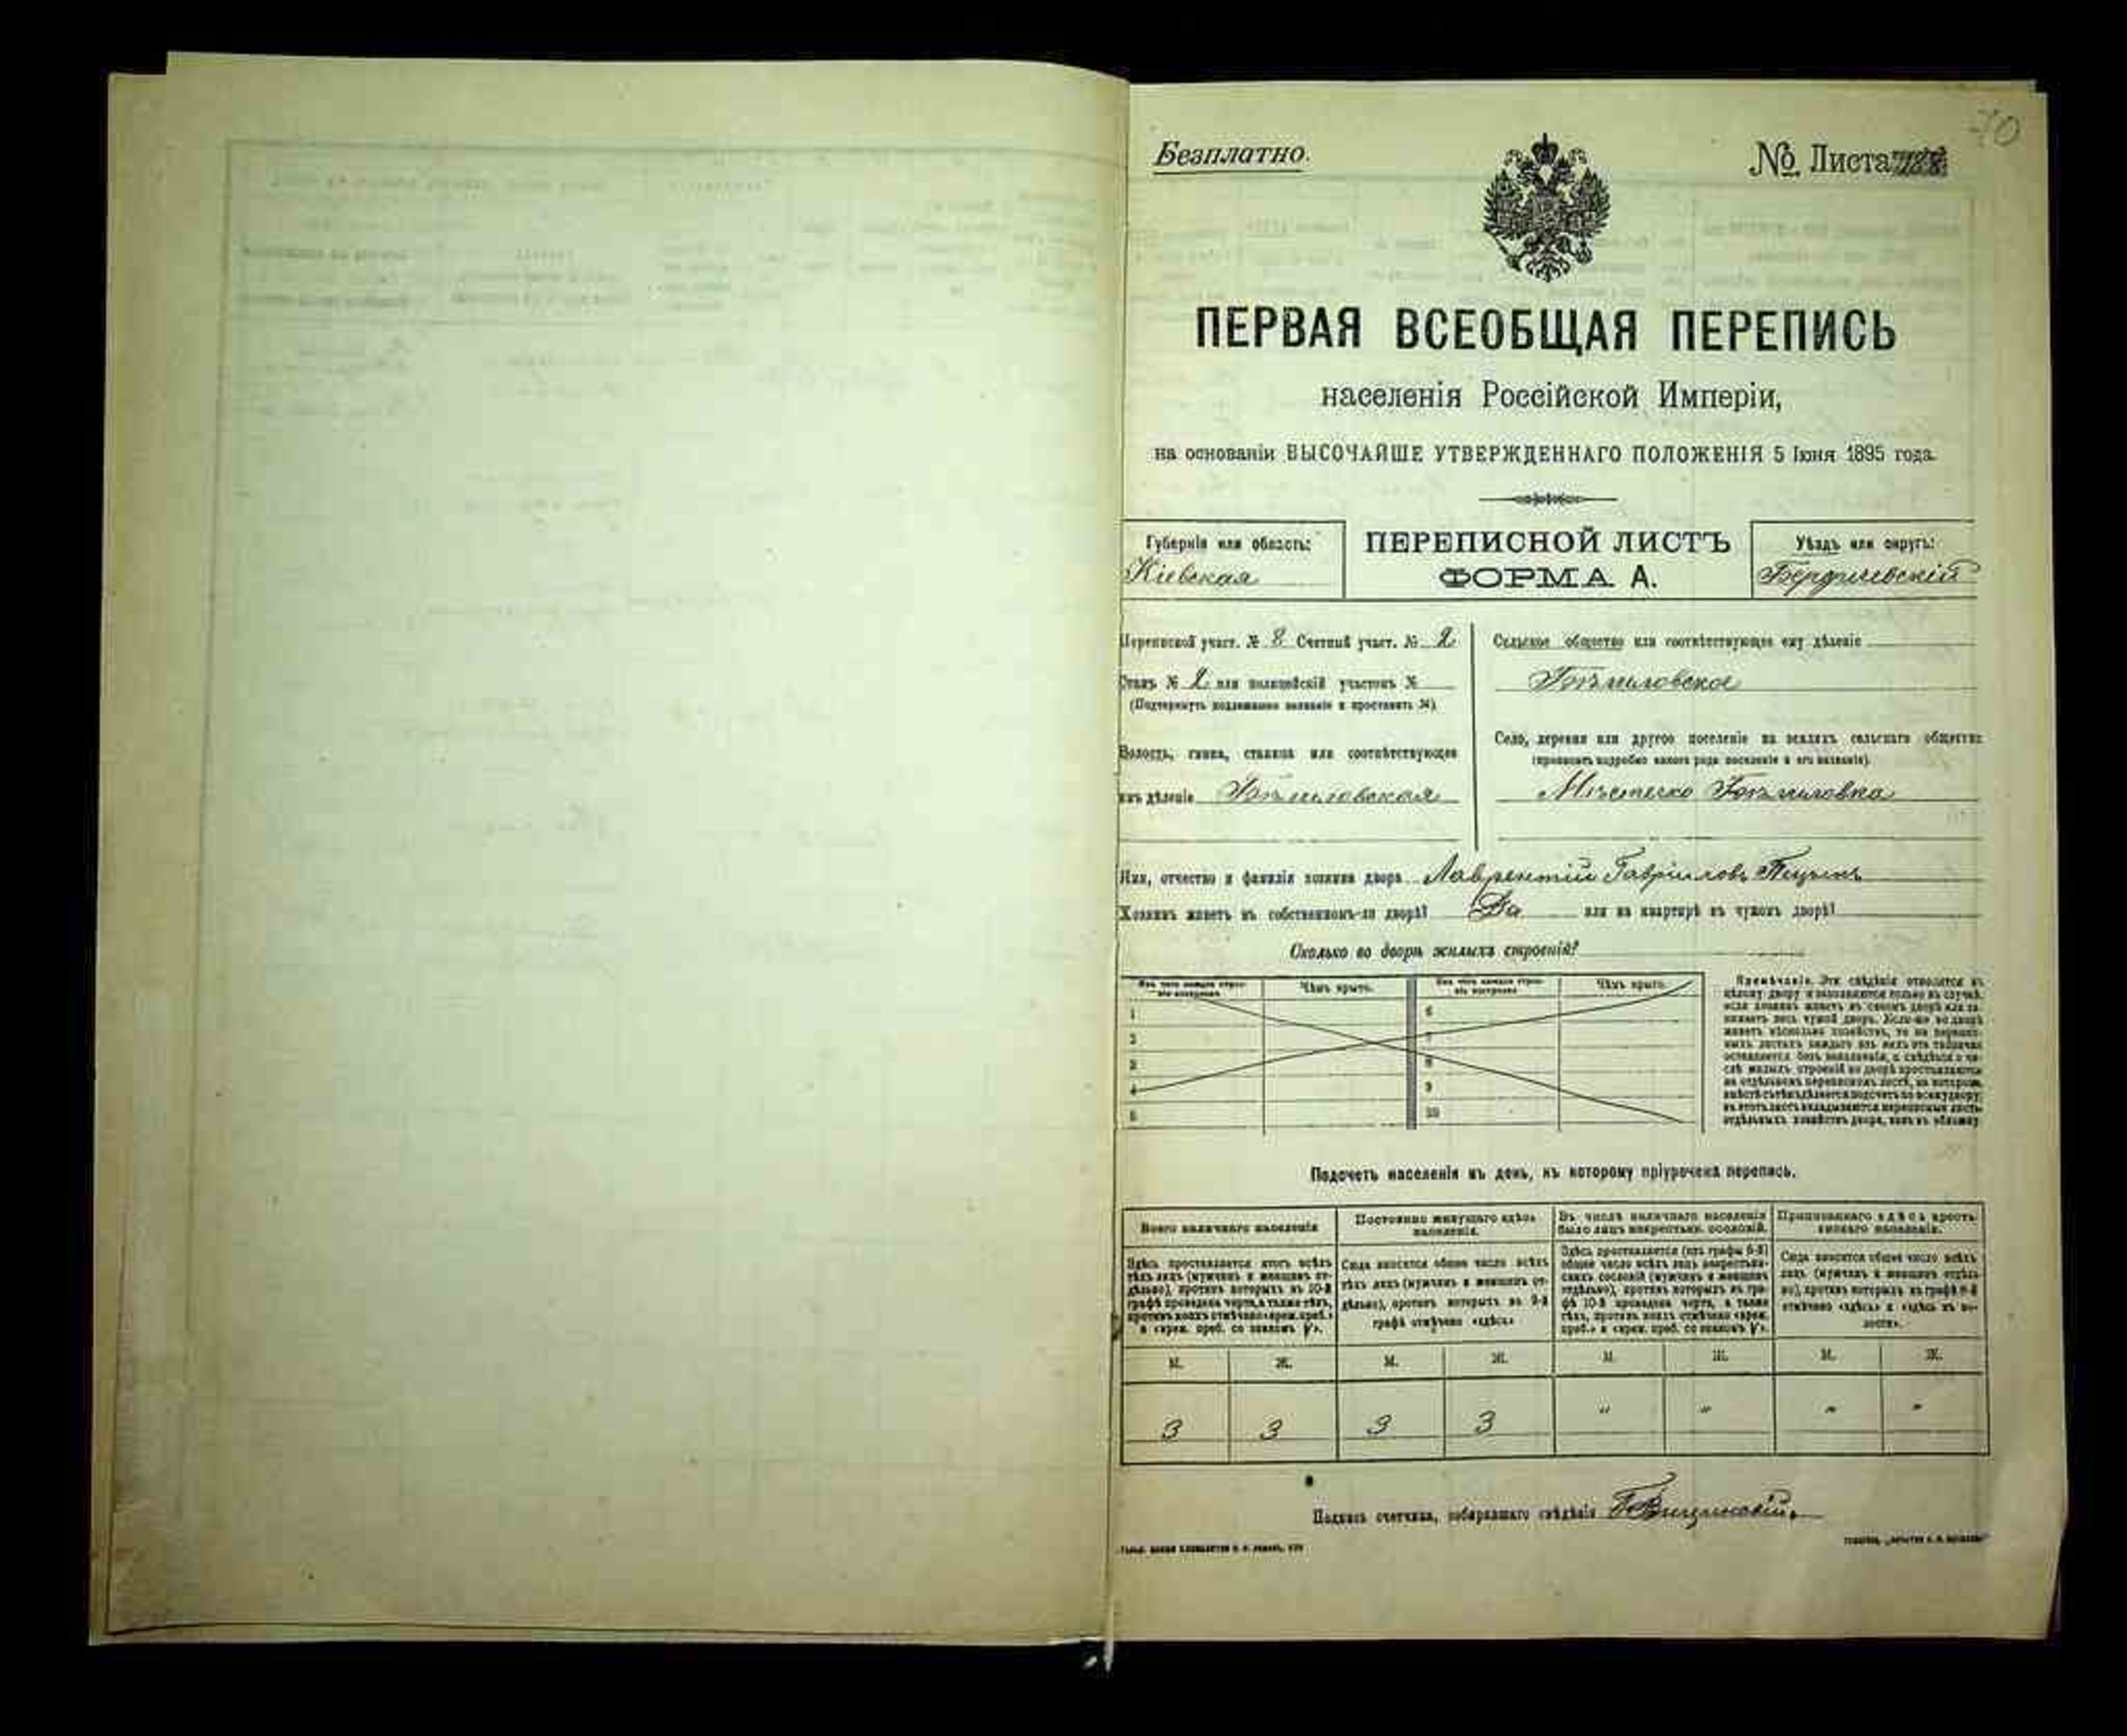 70
Безплатно.
№ Листа
ПЕРВАЯ ВСЕОБЩАЯ ПЕРЕПИСЬ
населенія Россійской Имперіи,
на основаніи ВЫСОЧАЙШЕ УТВЕРЖДЕННАГО ПОЛОЖЕНІЯ 5 Іюня 1895 года.
Губернія или область:
Кіевская
ПЕРЕПИСНОЙ ЛИСТЪ
ФОРМА А.
Уѣздъ или округъ:
Бердичевскій
Переписной участ. № 8 Счетный участ. № 2
Станъ № 2 или полицейскій участокъ №
(Подчеркнуть подлежащее названіе и проставить №).
Волость, гмина, станица или соотвѣтствующее
имъ дѣленіе
Сельское общество или соотвѣтствующее ему дѣленіе
Село, деревня или другое поселеніе на земляхъ сельскаго общества
(прописать подробно какого рода поселеніе и его названіе).
Мѣстечко
Имя, отчество и фамилія хозяина двора Лаврентій Гавриловъ
Хозяинъ живетъ въ собственномъ-ли дворѣ? Да или на квартирѣ въ чужомъ дворѣ?
Сколько во дворѣ жилыхъ строеній?
Изъ чего каждое строеніе построено
Чѣмъ крыто.
Изъ чего каждое строеніе построено
Чѣмъ крыто.
1
2
3
4
5
6
7
8
9
10
Примѣчаніе. Эти свѣдѣнія относятся къ
цѣлому двору и заполняются только въ случаѣ,
если хозяинъ живетъ въ своемъ дворѣ или за-
нимаетъ весь чужой дворъ. Если-же во дворѣ
живетъ нѣсколько хозяйствъ, то на перепис-
ныхъ листахъ каждаго изъ нихъ эта табличка
оставляется безъ заполненія, а свѣдѣнія о чи-
слѣ жилыхъ строеній во дворѣ проставляются
на отдѣльномъ переписномъ листѣ, на которомъ
вмѣстѣ съ тѣмъ дѣлается подсчетъ по всему двору;
въ этотъ листъ вкладываются переписные листы
отдѣльныхъ хозяйствъ двора, какъ въ обложку.
Подсчетъ населенія въ день, къ которому пріурочена перепись.
Всего наличнаго населенія
Постоянно живущаго здѣсь
населенія.
Въ числѣ наличнаго населенія
было лицъ некрестьян. сословій.
Приписаннаго здѣсь кресть-
янскаго населенія.
Здѣсь проставляется итогъ всѣхъ
тѣхъ лицъ (мужчинъ и женщинъ от-
дѣльно), противъ которыхъ въ 10-й
графѣ проведена черта, а также тѣхъ,
противъ коихъ отмѣчено «врем. преб.»
и «врем. преб. со знакомъ V».
Сюда вносится общее число всѣхъ
тѣхъ лицъ (мужчинъ и женщинъ от-
дѣльно), противъ которыхъ въ 9-й
графѣ отмѣчено «здѣсь»
Здѣсь проставляется (изъ графы 6-й)
общее число всѣхъ лицъ некрестьян-
скихъ сословій (мужчинъ и женщинъ
отдѣльно), противъ которыхъ въ гра-
фѣ 10-й проведена черта, а также
тѣхъ, противъ коихъ отмѣчено «врем.
преб.» и «врем. преб. со знакомъ V».
Сюда вносится общее число всѣхъ
лицъ (мужчинъ и женщинъ отдѣль-
но), противъ которыхъ въ графѣ 8-й
отмѣчено «здѣсь» и «здѣсь въ во-
лости».
М. Ж. М. Ж. М. Ж. М. Ж.
3 3 3 3 " " " "
Подпись счетчика, собиравшаго свѣдѣнія